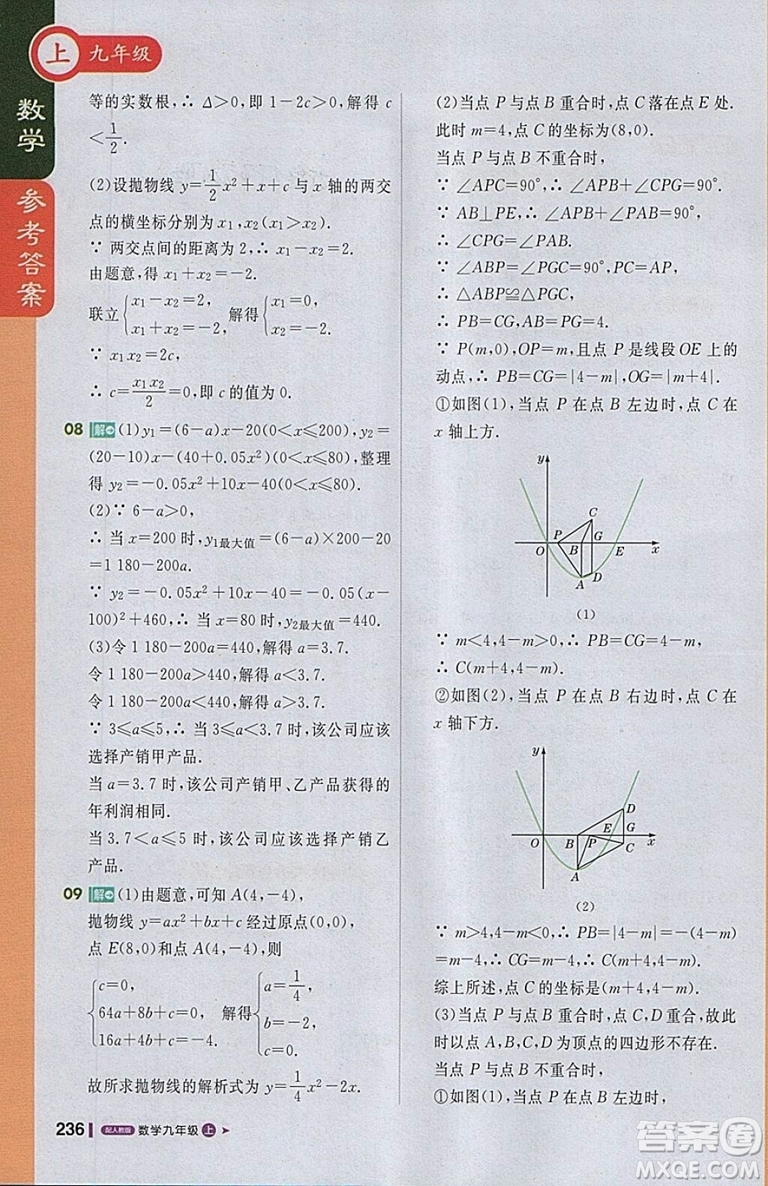 上 九年级
数学
参考答案
等的实数根,∴ Δ>0,即 1-2c>0,解得 c
<1/2.
(2)设抛物线 y=1/2x²+x+c 与 x 轴的两交
点的横坐标分别为 x₁,x₂(x₁>x₂).
∵ 两交点间的距离为 2,∴ x₁-x₂=2.
由题意,得 x₁+x₂=-2.
联立{x₁-x₂=2, x₁+x₂=-2, 解得{x₁=0, x₂=-2.
∵ x₁x₂=2c,
∴ c=x₁x₂/2=0,即 c 的值为 0.
08 解 (1)y₁=(6-a)x-20(0<x≤200),y₂=
(20-10)x-(40+0.05x²)(0<x≤200),整理
得 y₂=-0.05x²+10x-40(0<x≤200).
(2)∵ 6-a>0,
∴ 当 x=200 时,y₁最大值=(6-a)×200-20
=1 180-200a.
∵ y₂=-0.05x²+10x-40=-0.05(x-
100)²+460,∴ 当 x=80 时,y₂最大值=440.
(3)令 1 180-200a=440,解得 a=3.7.
令 1 180-200a>440,解得 a<3.7.
令 1 180-200a<440,解得 a>3.7.
∵ 3≤a≤5,∴ 当 3≤a<3.7 时,该公司应该
选择产销甲产品.
当 a=3.7 时,该公司产销甲、乙产品获得的
年利润相同.
当 3.7<a≤5 时,该公司应该选择产销乙
产品.
09 解 (1)由题意,可知 A(4,-4),
抛物线 y=ax²+bx+c 经过原点(0,0),
点 E(8,0)和点 A(4,-4),则
{c=0, 64a+8b+c=0, 16a+4b+c=-4. 解得 {a=1/4, b=-2, c=0.
故所求抛物线的解析式为 y=1/4x²-2x.
236 配人教版 数学九年级 上
(2)当点 P 与点 B 重合时,点 C 落在点 E 处.
此时 m=4,点 C 的坐标为(8,0).
当点 P 与点 B 不重合时,
∵ ∠APC=90°,∴ ∠APB+∠CPG=90°.
∵ AB⊥PE,∴ ∠APB+∠PAB=90°,
∴ ∠CPG=∠PAB.
∵ ∠ABP=∠PGC=90°,PC=AP,
∴ △ABP≌△PGC,
∴ PB=CG,AB=PG=4.
∵ P(m,0),OP=m,且点 P 是线段 OE 上的
动点,∴ PB=CG=|4-m|,OG=|m+4|.
①如图(1),当点 P 在点 B 左边时,点 C 在
x 轴上方.
y
C
P G
O B E x
A D
(1)
∵ m<4,4-m>0,∴ PB=CG=4-m,
∴ C(m+4,4-m).
②如图(2),当点 P 在点 B 右边时,点 C 在
x 轴下方.
y
D
E G
O B P C x
A
(2)
∵ m>4,4-m<0,∴ PB=|4-m|=-(4-m)
=m-4,∴ CG=m-4,∴ C(m+4,4-m).
综上所述,点 C 的坐标是(m+4,4-m).
(3)当点 P 与点 B 重合时,点 C,D,E 重合,故此
时以点 A,B,C,D 为顶点的四边形不存在.
当点 P 与点 B 不重合时,
①如图(1),当点 P 在点 B 的左边时,
答案圈
MXQE.COM